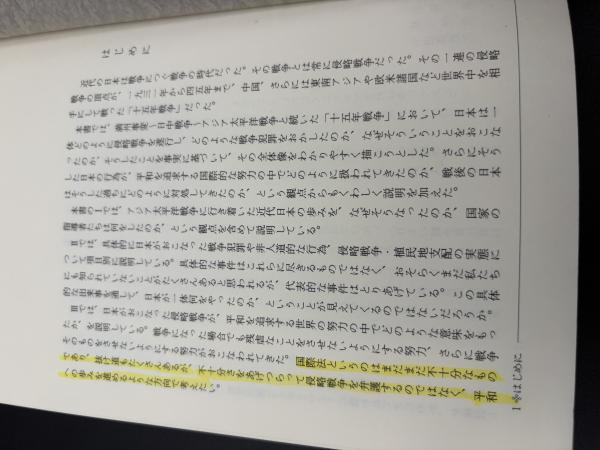 はじめに
近代の日本は戦争につぐ戦争の時代だった。その戦争とは常に侵略戦争だった。その一連の侵略
戦争の頂点が、一九三一年から四五年まで、中国、さらには東南アジアや欧米諸国など世界中を相
手にして戦った「十五年戦争」だった。
本書では、満州事変―日中戦争―アジア太平洋戦争と続いた「十五年戦争」において、日本は一
体どのように侵略戦争を遂行し、どのような戦争犯罪をおかしたのか、なぜそういうことをおこな
ったのか、そうしたことを事実に基づいて、その全体像をわかりやすく描こうとした。さらにそう
した日本の行為が、平和を追求する国際的な努力の中でどのように扱われてきたのか、戦後の日本
はそうした過ちにどのように対処してきたのか、という観点からもくわしく説明を加えた。
本書のⅠでは、アジア太平洋戦争に行き着いた近代日本の歩みを、なぜそうなったのか、国家の
指導者たちは何をしたのか、という観点を含めて説明している。
Ⅱでは、具体的に日本がおこなった戦争犯罪や非人道的な行為、侵略戦争・植民地支配の実態に
ついて項目別に説明している。具体的な事件はこれらに尽きるものではなく、おそらくまだ私たち
にも知られていないことがたくさんあると思われるが、代表的な事件はとりあげている。この具体
的な出来事を通して、日本が一体何をやったのか、ということが見えてくるのではないだろうか。
Ⅲでは、日本がおこなった侵略戦争が、平和を追求する世界の努力の中でどのような意味をもっ
たか、を説明している。戦争になった場合でも残虐なことをさせないようにする努力、さらに戦争
そのものをさせないようにする努力がおこなわれてきた。国際法というのはまだまだ不十分なもの
であり、抜け道もたくさんあるが、不十分さをあげつらって侵略戦争を弁護するのではなく、平和
への歩みを進めるような方向で考えたい。
1 ❖はじめに